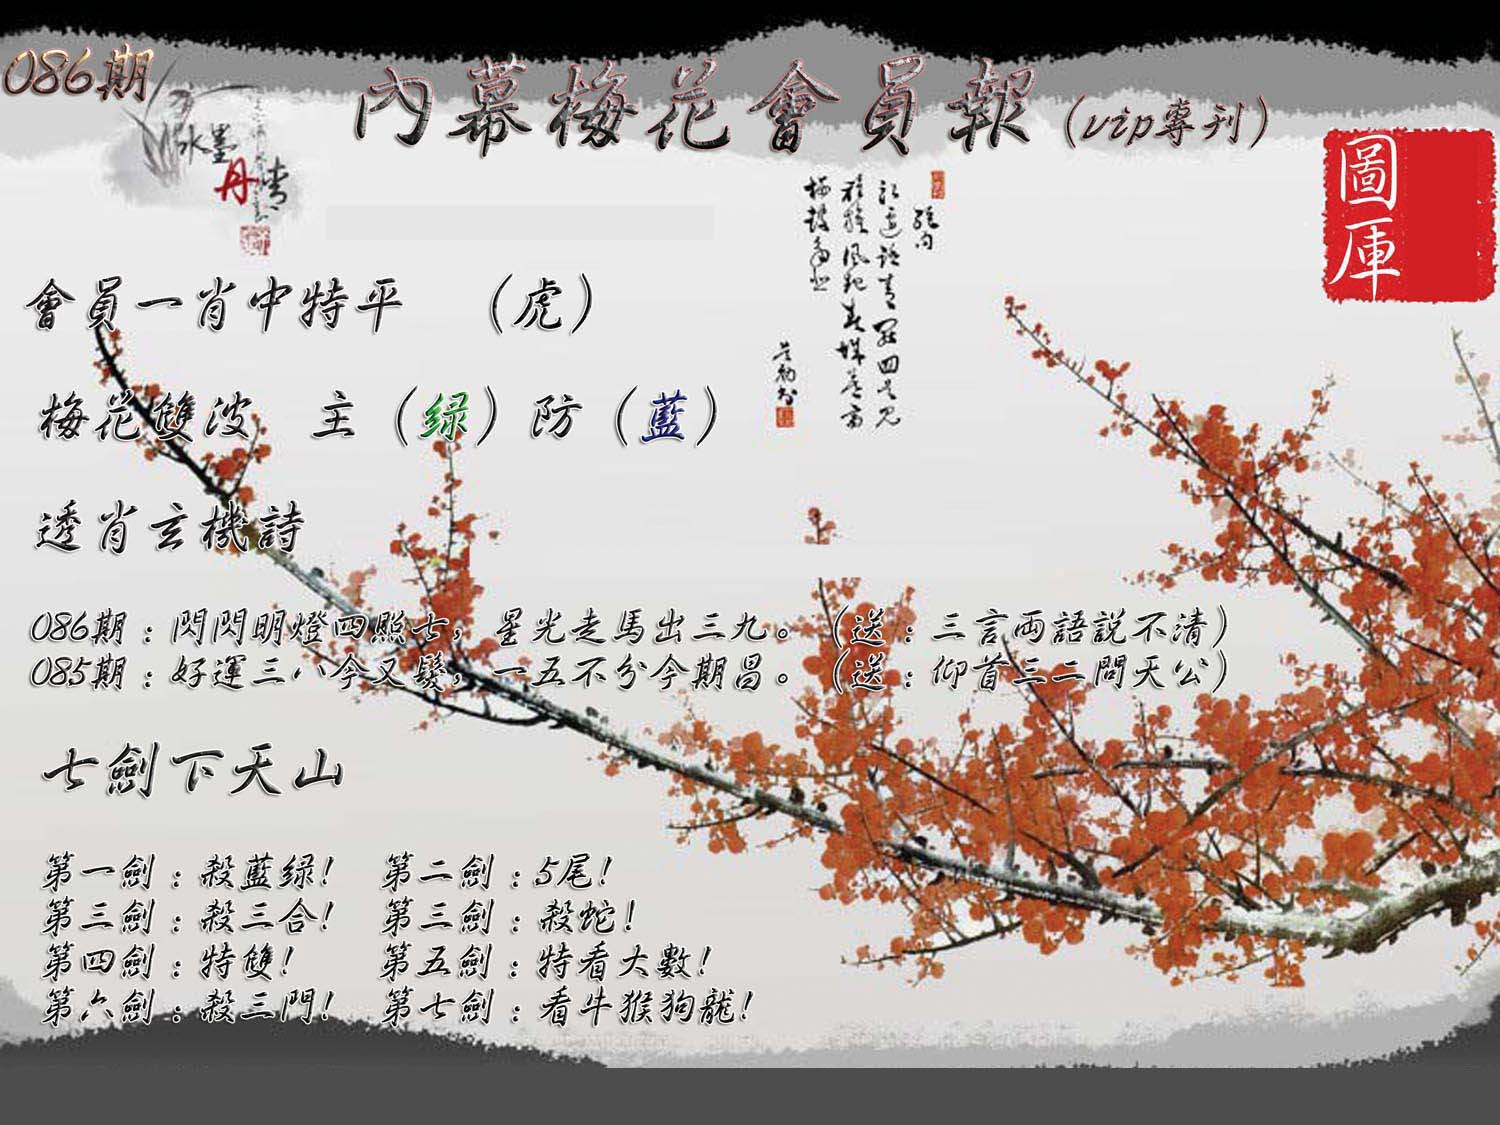 086期
內幕梅花會員報(vip專刊)
水墨
丹青
圖庫
會員一肖中特平 (虎)
梅花雙波 主(绿)防(藍)
透肖玄機詩
086期：閃閃明燈四照士，星光走馬出三九。(送：三言両語説不清)
085期：好運三八今又發，一五不分今期昌。(送：仰首三二問天公)
七劍下天山
第一劍：殺藍绿! 第二劍：5尾!
第三劍：殺三合! 第三劍：殺蛇!
第四劍：特雙! 第五劍：特看大數!
第六劍：殺三門! 第七劍：看牛猴狗龍!